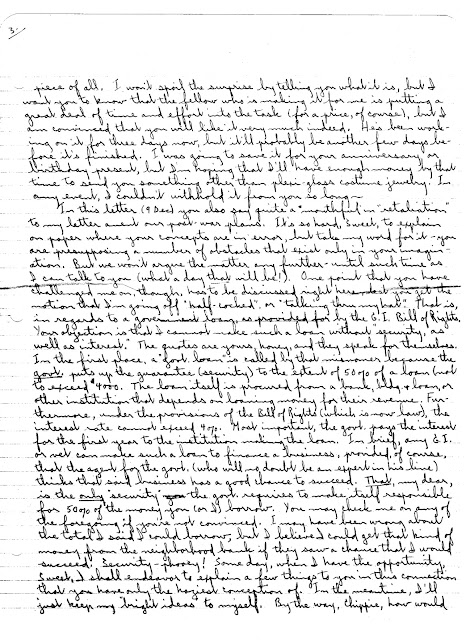 3.
piece of all. I won't spoil the surprise by telling you what it is, but I
want you to know that the fellow who is making it for me is putting a
great deal of time and effort into the task (for a price, of course), but I
am convinced that you will like it very much indeed. He's been work-
ing on it for three days now, but it'll probably be another few days be-
fore it's finished. I was going to save it for your anniversary or
birthday present, but I'm hoping that I'll have enough money by that
time to send you something other than plexi-glass costume jewelry. In
any event, I couldn't withhold it from you so long—
In this letter (9 Dec) you also say quite a "mouthful" in "retaliation"
to my letter anent our post-war plans. It's so hard, Sweet, to explain
on paper where your concepts are in error, but take my word for it - you
are presupposing a number of obstacles that exist only in your imagin-
ation. But we won't argue the matter any further - until such time as
I can talk to you (what a day that will be!). One point that you have
challenged me on, though, has to be discussed right here, lest you get the
notion that I'm going off "half-cocked", or "talking thru my hat". That is,
in regards to a government loan, as provided for by the G.I. Bill of Rights.
Your objection is that I cannot make such a loan without "security, as
well as interest." The quotes are yours, honey, and they speak for themselves.
In the first place, a "govt loan" is called by that misnomer because the
govt puts up the guarantee (security) to the extent of 50% of a loan (not
to exceed $4000. The loan itself is procured from a bank, bldg & loan, or
other institution that depends on loaning money for their revenue. Fur-
thermore, under the provisions of the Bill of Rights (which is now law), the
interest rate cannot exceed 4%. Most important, the govt. pays the interest
for the first year to the institution making the loan. In brief, any G.I.
or vet can make such a loan to finance a business, provided, of course,
that the agent for the govt. (who will no doubt be an expert in his line)
thinks that said business has a good chance to succeed. That, my dear,
is the only "security" the govt requires to make itself responsible
for 50% of the money you (or I) borrow. You may check me on any of
the foregoing if you're not convinced. I may have been wrong about
the total I said I could borrow, but I believe I could get that kind of
money from the neighborhood bank if they saw a chance that I would
succeed. Security - phooey! Some day, when I have the opportunity,
Sweet, I shall endeavor to explain a few things to you in this connection
that you have only the haziest conception of. In the meantime, I'll
just keep my bright ideas to myself. By the way, Chippie, how would